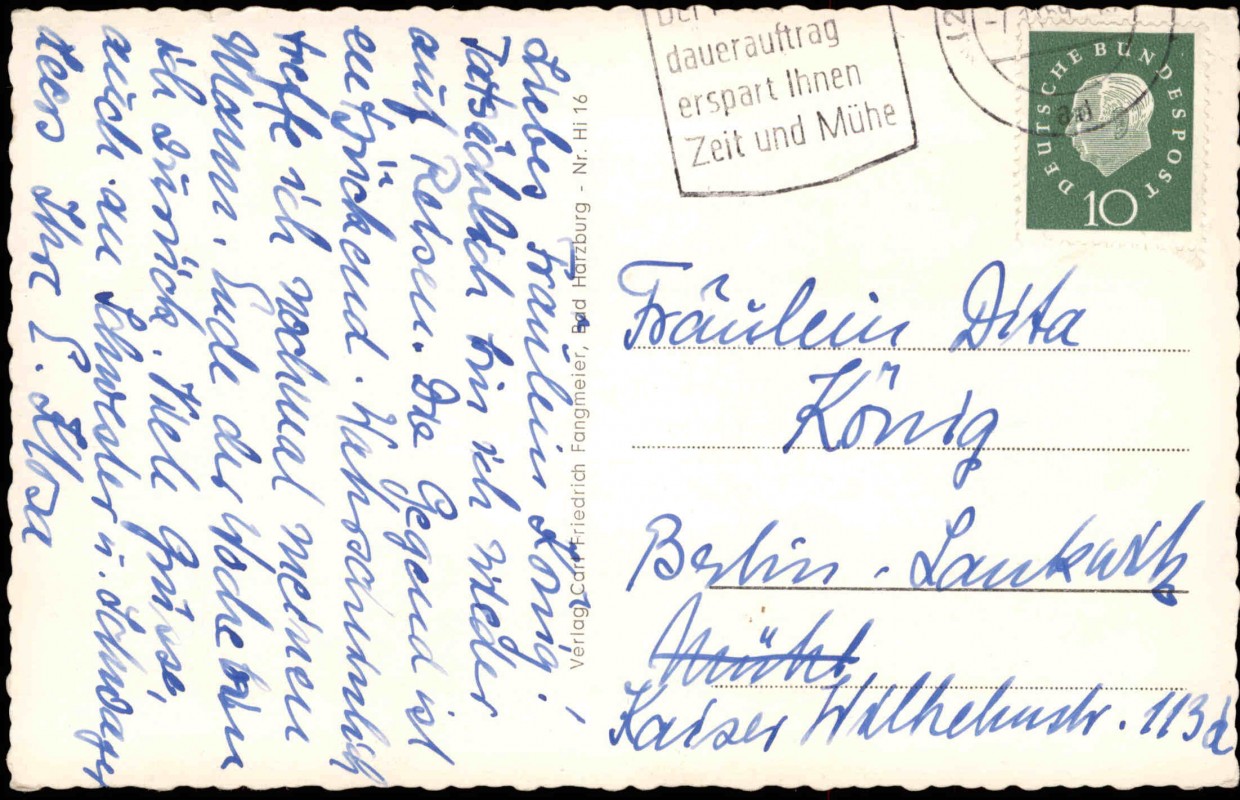 Liebes Fräulein König!
Tatsächlich bin ich wieder
auf Reisen. Die Gegend ist
entzückend. Wahrscheinlich
treffe ich nochmal meinen
Mann. Ende der Woche bin
ich zurück. Viele Grüsse,
auch an Schwester u. Schwager
Ihre E.
Verlag Carl Friedrich Fangmeier, Bad Harzburg - Nr. Hi 16
dauerauftrag
erspart Ihnen
Zeit und Mühe
DEUTSCHE BUNDESPOST
10
Fräulein Dita
König
Berlin - Lankwitz
Kaiser Wilhelmstr. 113a